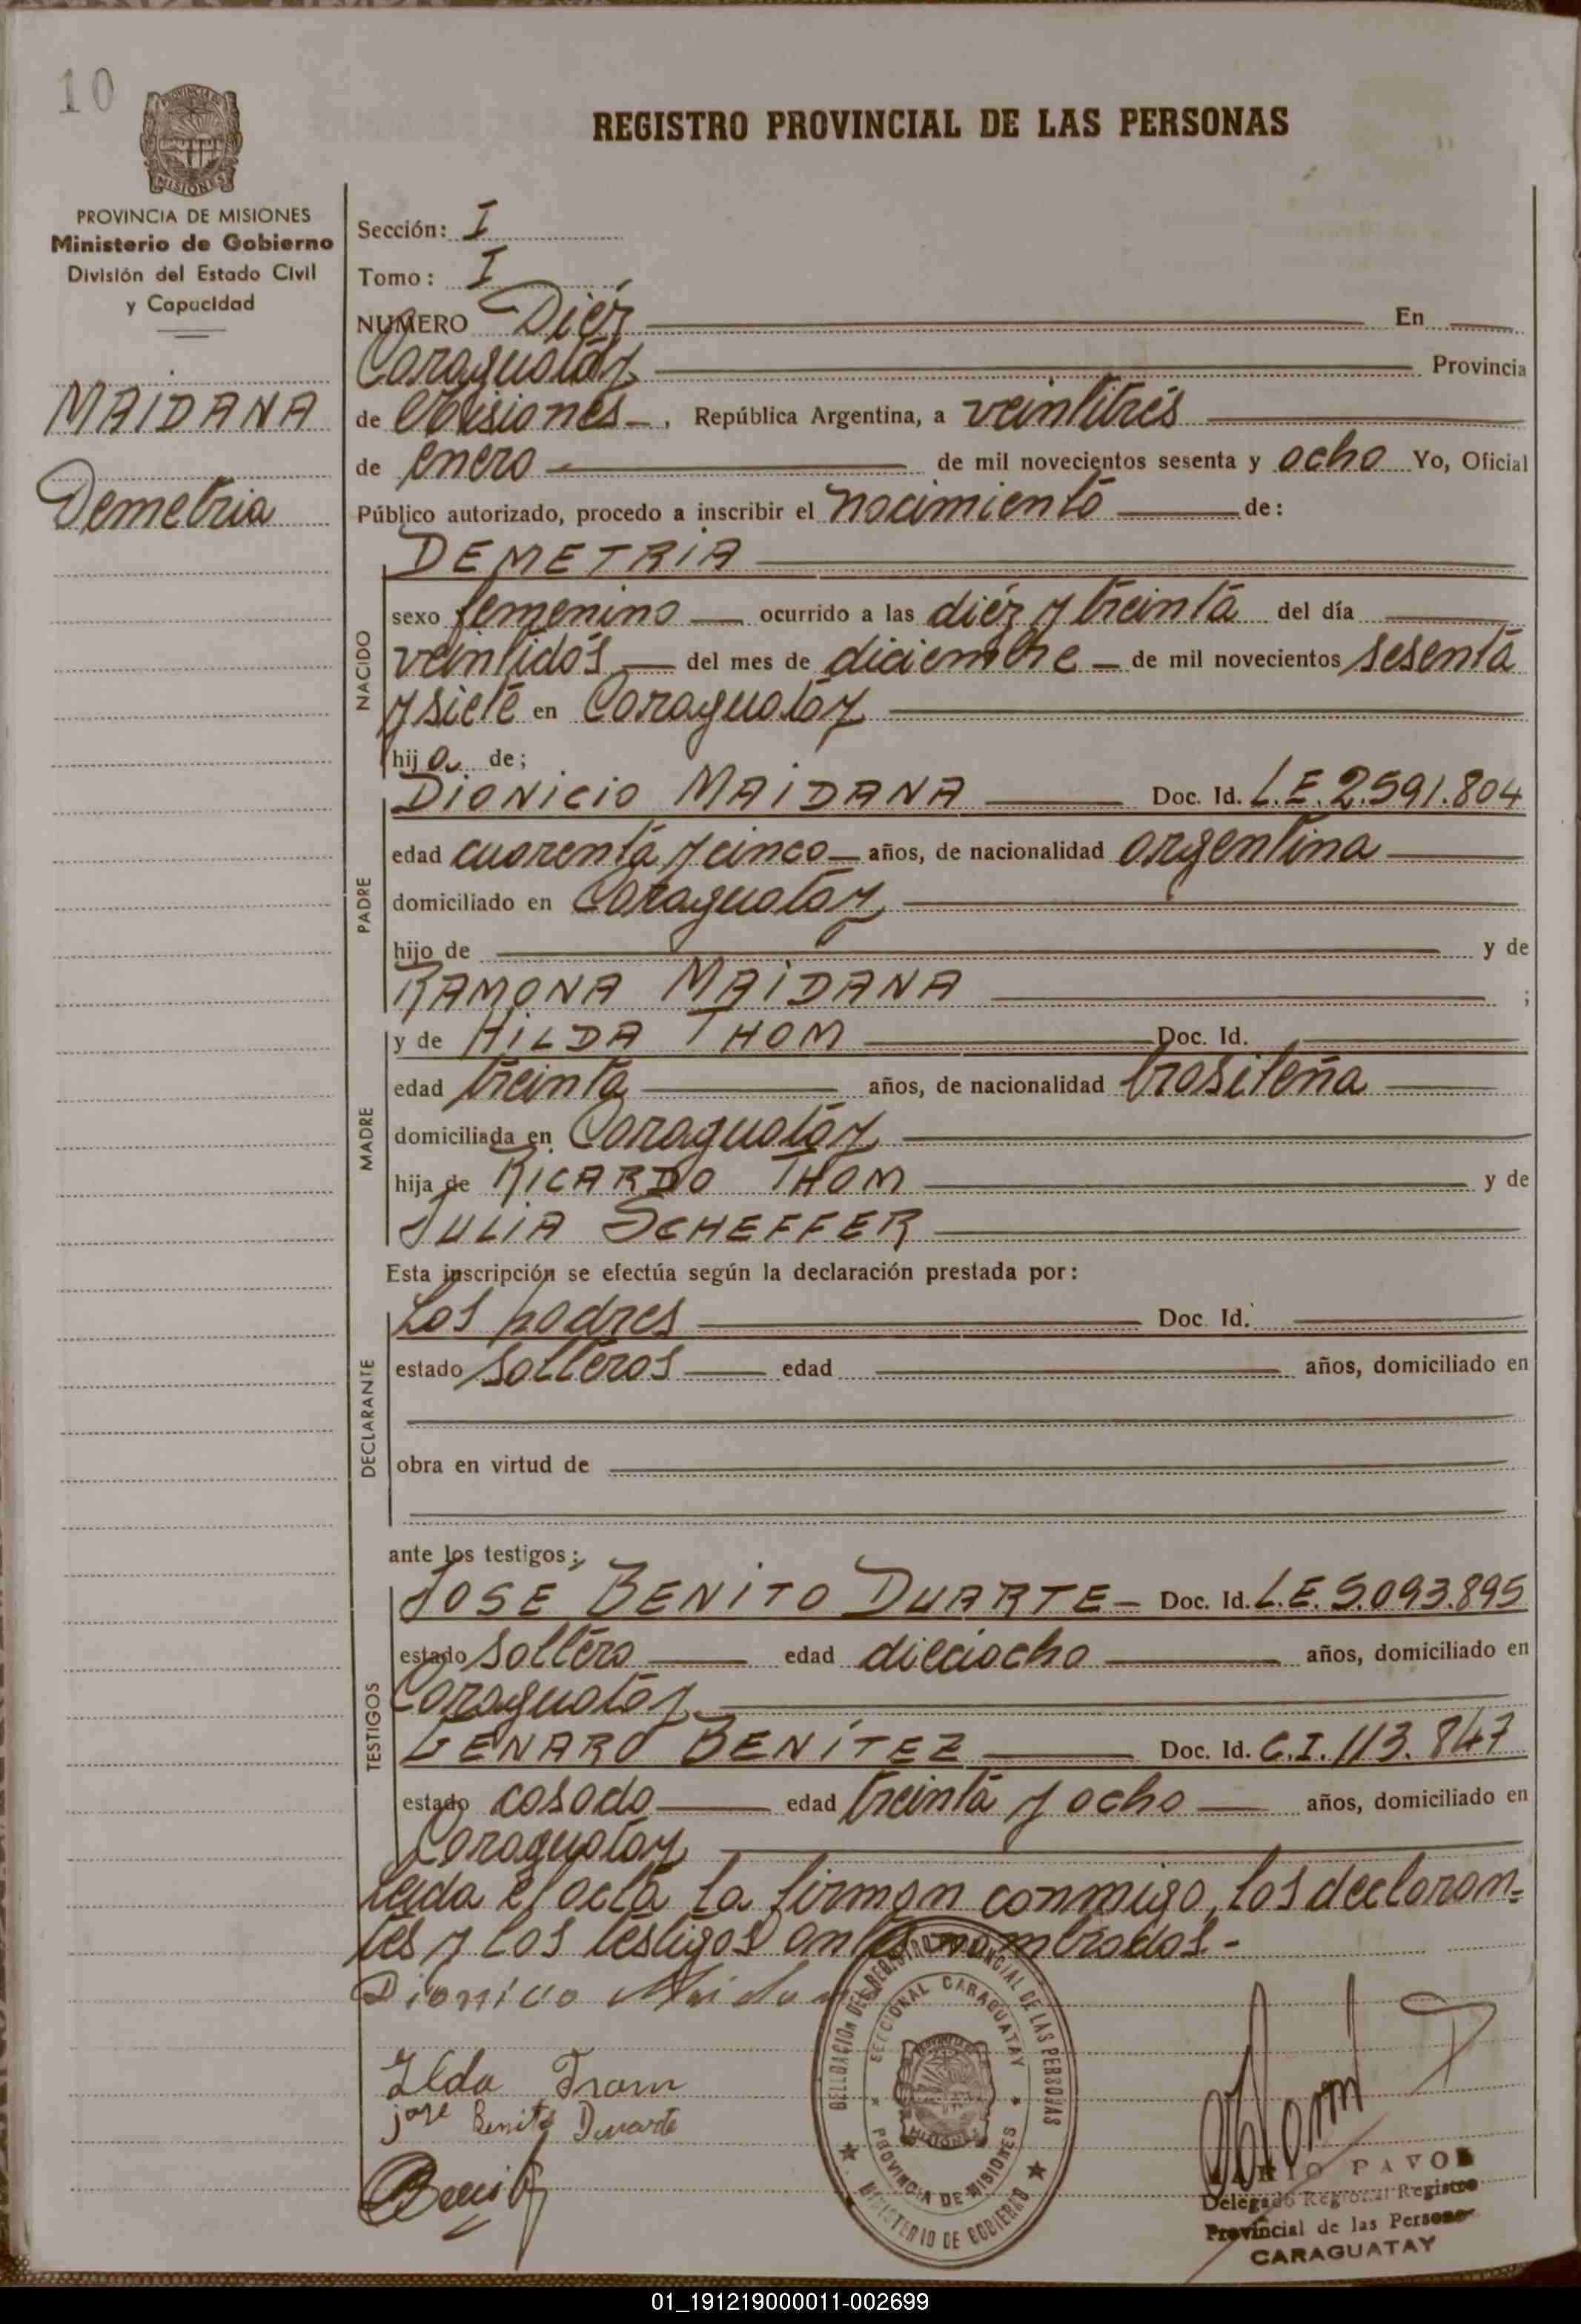 10
REGISTRO PROVINCIAL DE LAS PERSONAS
PROVINCIA DE MISIONES
MISIONES
PROVINCIA DE MISIONES
Ministerio de Gobierno
División del Estado Civil
y Capacidad
MAIDANA
Demetria
Sección: I
Tomo: I
NUMERO Diéz En
Caraguatay Provincia
de Misiones, República Argentina, a veintitrés
de enero de mil novecientos sesenta y ocho Yo, Oficial
Público autorizado, procedo a inscribir el nacimiento de:
NACIDO
DEMETRIA
sexo femenino ocurrido a las diéz y treinta del día
veintidós del mes de diciembre de mil novecientos sesenta
y siete en Caraguatay
hija de;
PADRE
DIONICIO MAIDANA Doc. Id. L.E. 2.591.804
edad cuarenta y cinco años, de nacionalidad argentina
domiciliado en Caraguatay
hijo de y de
RAMONA MAIDANA ;
MADRE
y de HILDA THOM Doc. Id.
edad treinta años, de nacionalidad brasileña
domiciliada en Caraguatay
hija de RICARDO THOM y de
JULIA SCHEFFER
Esta inscripción se efectúa según la declaración prestada por:
DECLARANTE
Los padres Doc. Id.
estado solteros edad años, domiciliado en
obra en virtud de
ante los testigos:
TESTIGOS
JOSE BENITO DUARTE Doc. Id. L.E. 5.093.895
estado soltero edad dieciocho años, domiciliado en
Caraguatay
GENARO BENÍTEZ Doc. Id. C.I. 113.847
estado casado edad treinta y ocho años, domiciliado en
Caraguatay
Leida el acta la firman conmigo, los declaran=
tes y los testigos antes nombrados.-
Dionicio Maidana
Ilda Tram
jose Benito Duarte
DELEGACION DEL REGISTRO PROVINCIAL DE LAS PERSONAS
SECCIONAL CARAGUATAY
PROVINCIA DE MISIONES
MINISTERIO DE GOBIERNO
PAVON
Delegado Regional Registro
Provincial de las Personas
CARAGUATAY
01_191219000011-002699